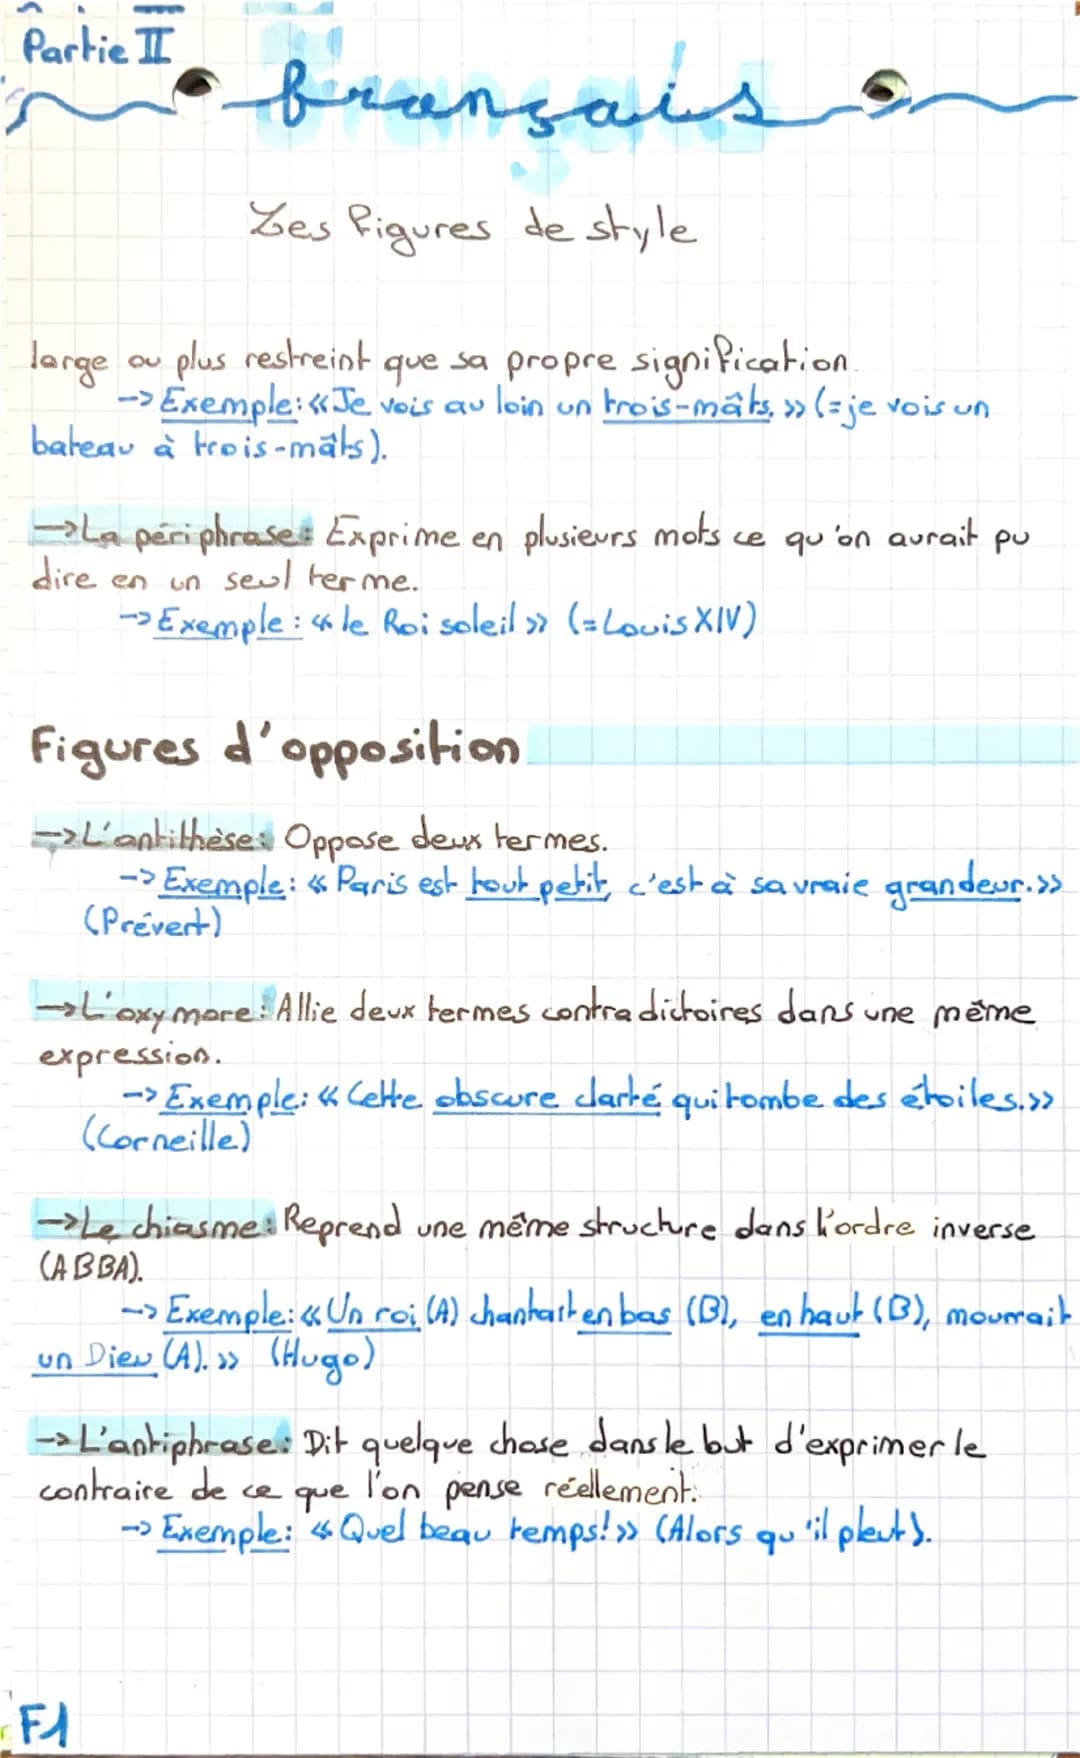 Partie II
français
Les figures de style
large ou plus restreint que sa propre signification.
-> Exemple: « Je vois au loin un trois-mâts. » (= je vois un
bateau à trois-mâts).
-> La périphrase: Exprime en plusieurs mots ce qu'on aurait pu
dire en un seul terme.
-> Exemple: « le Roi soleil » (= Louis XIV)
Figures d'opposition
-> L'antithèse: Oppose deux termes.
-> Exemple: « Paris est tout petit, c'est à sa vraie grandeur. »
(Prévert)
-> L'oxymore: Allie deux termes contradictoires dans une même
expression.
-> Exemple: « Cette obscure clarté qui tombe des étoiles. »
(Corneille)
-> Le chiasme: Reprend une même structure dans l'ordre inverse
(ABBA).
-> Exemple: « Un roi (A) chantait en bas (B), en haut (B), mourrait
un Dieu (A). » (Hugo)
-> L'antiphrase: Dit quelque chose dans le but d'exprimer le
contraire de ce que l'on pense réellement.
-> Exemple: « Quel beau temps! » (Alors qu'il pleut).
F1